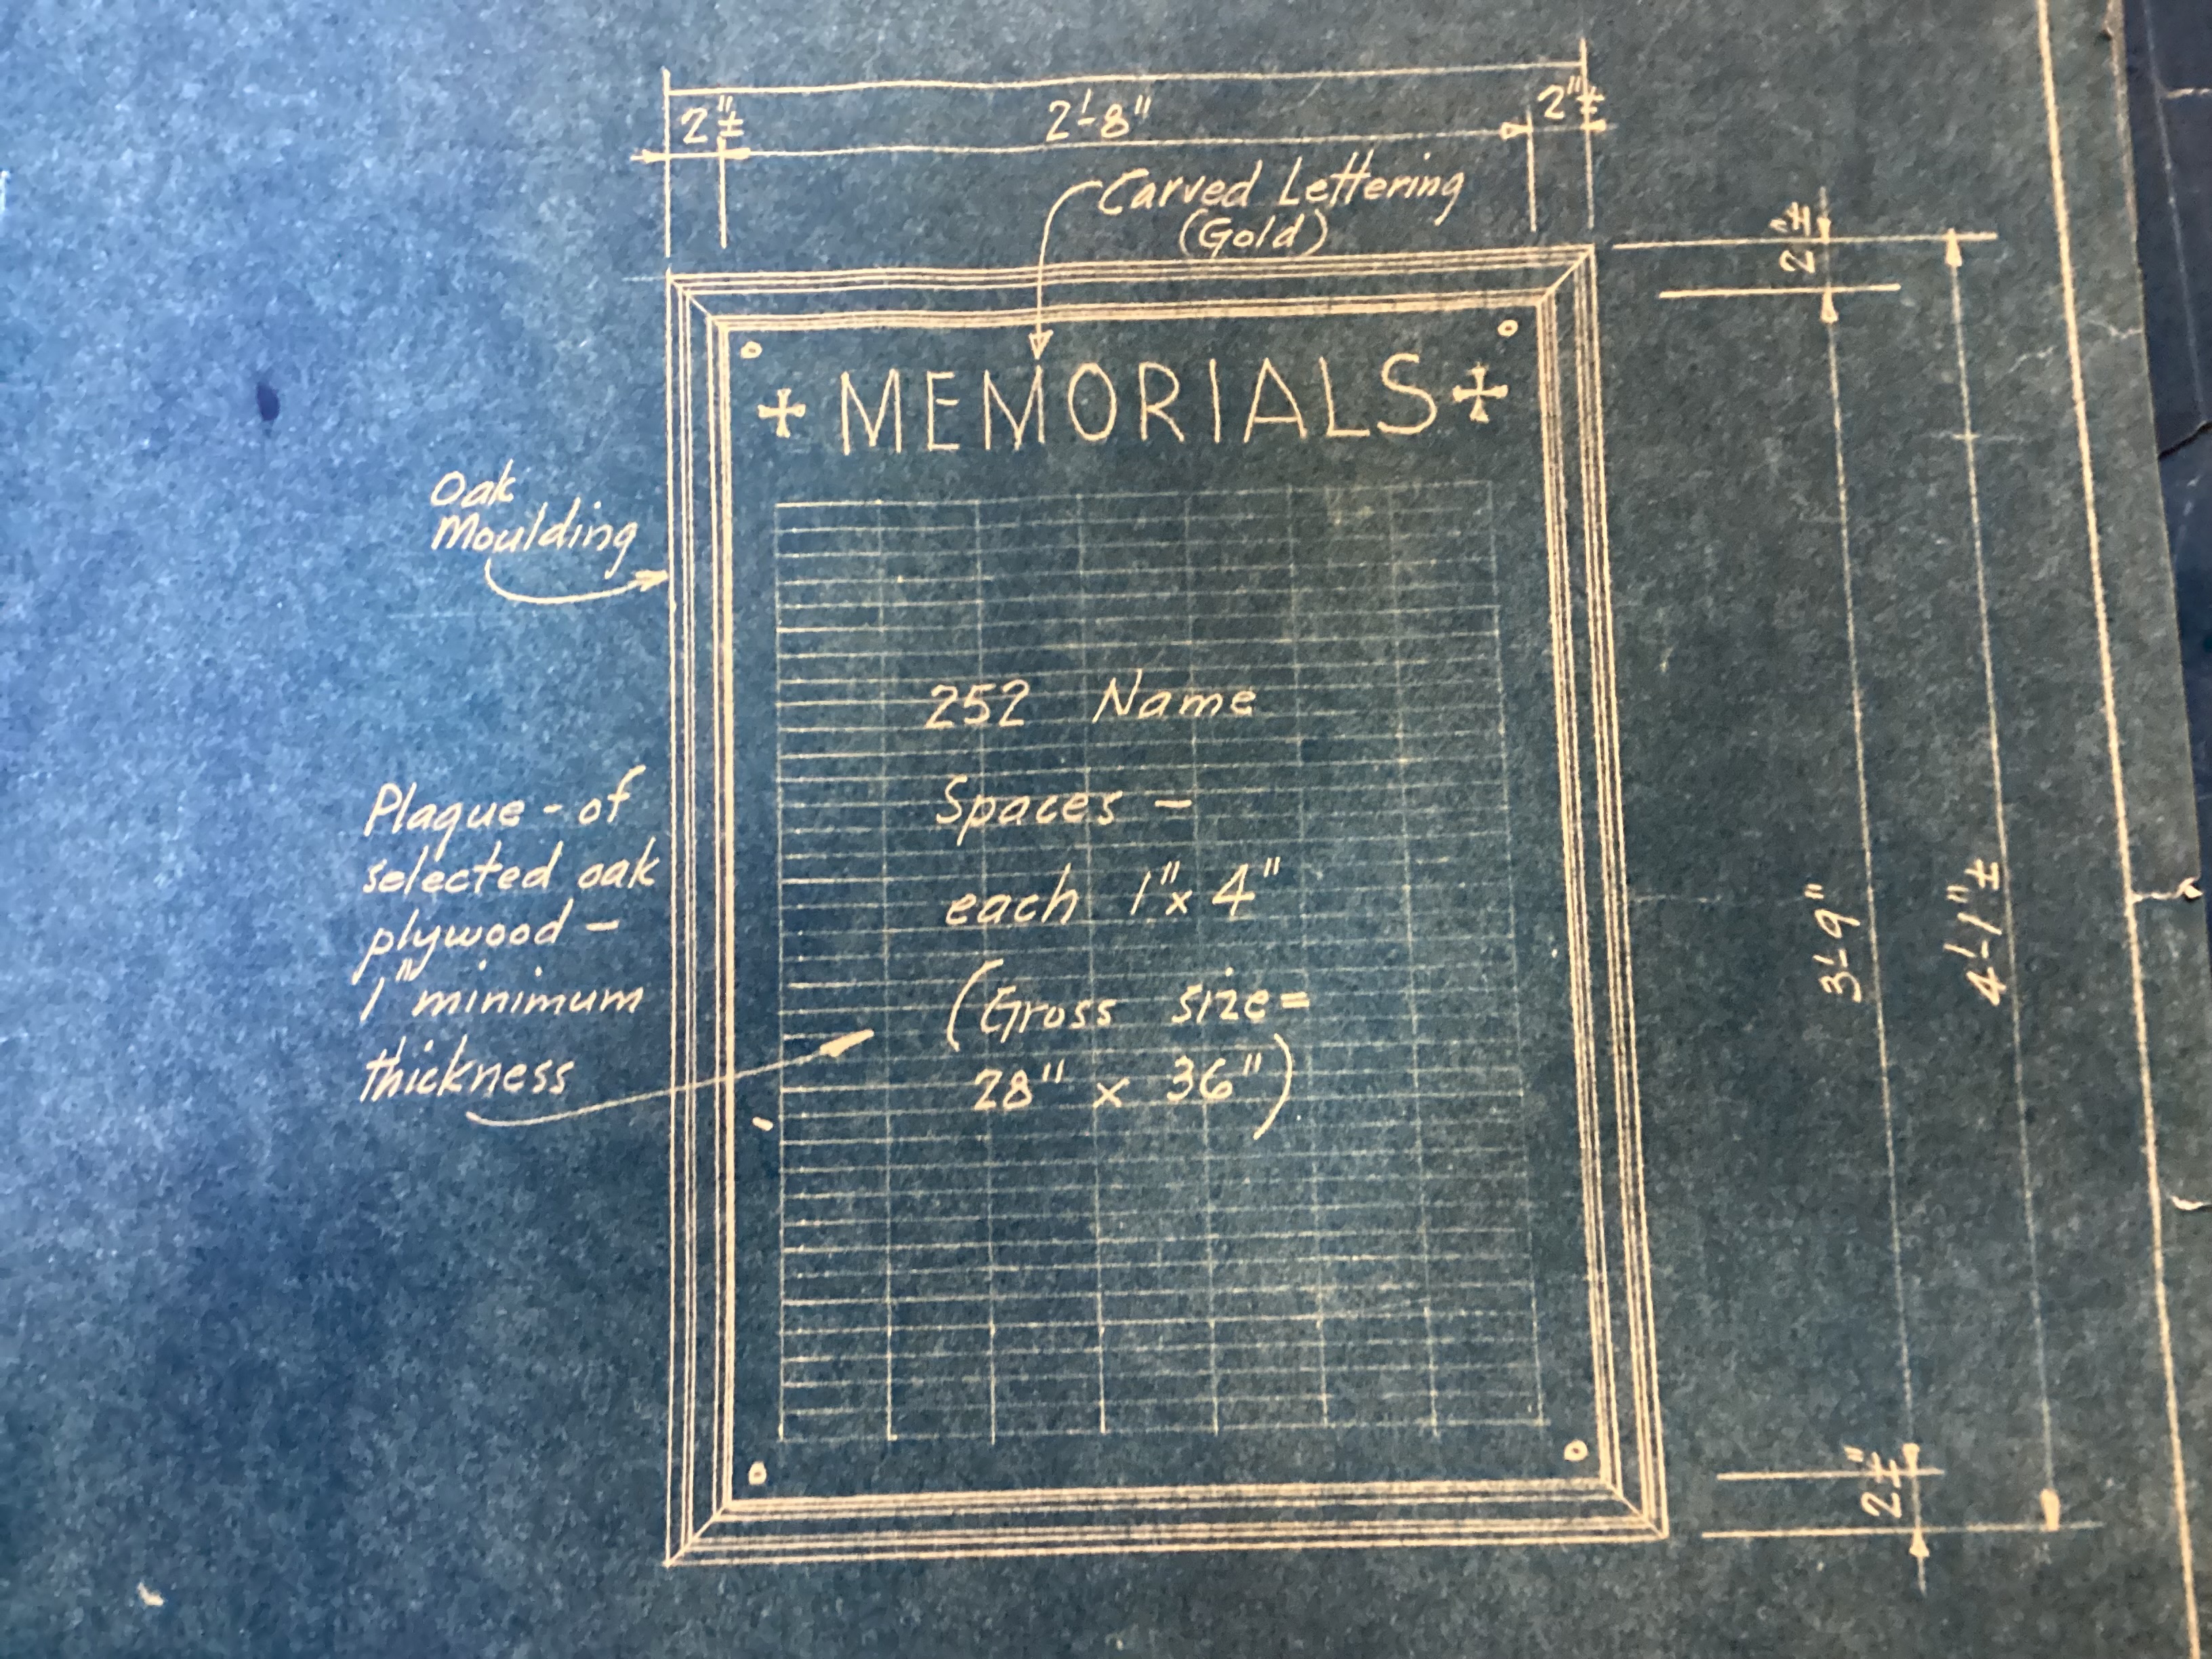 2"± 2'-8" 2"±
Carved Lettering
(Gold)
2"±
MEMORIALS
Oak
Moulding
252 Name
Spaces -
each 1" x 4"
(Gross size =
28" x 36")
Plaque - of
selected oak
plywood -
1" minimum
thickness
3'-9"
4'-1"±
2"±